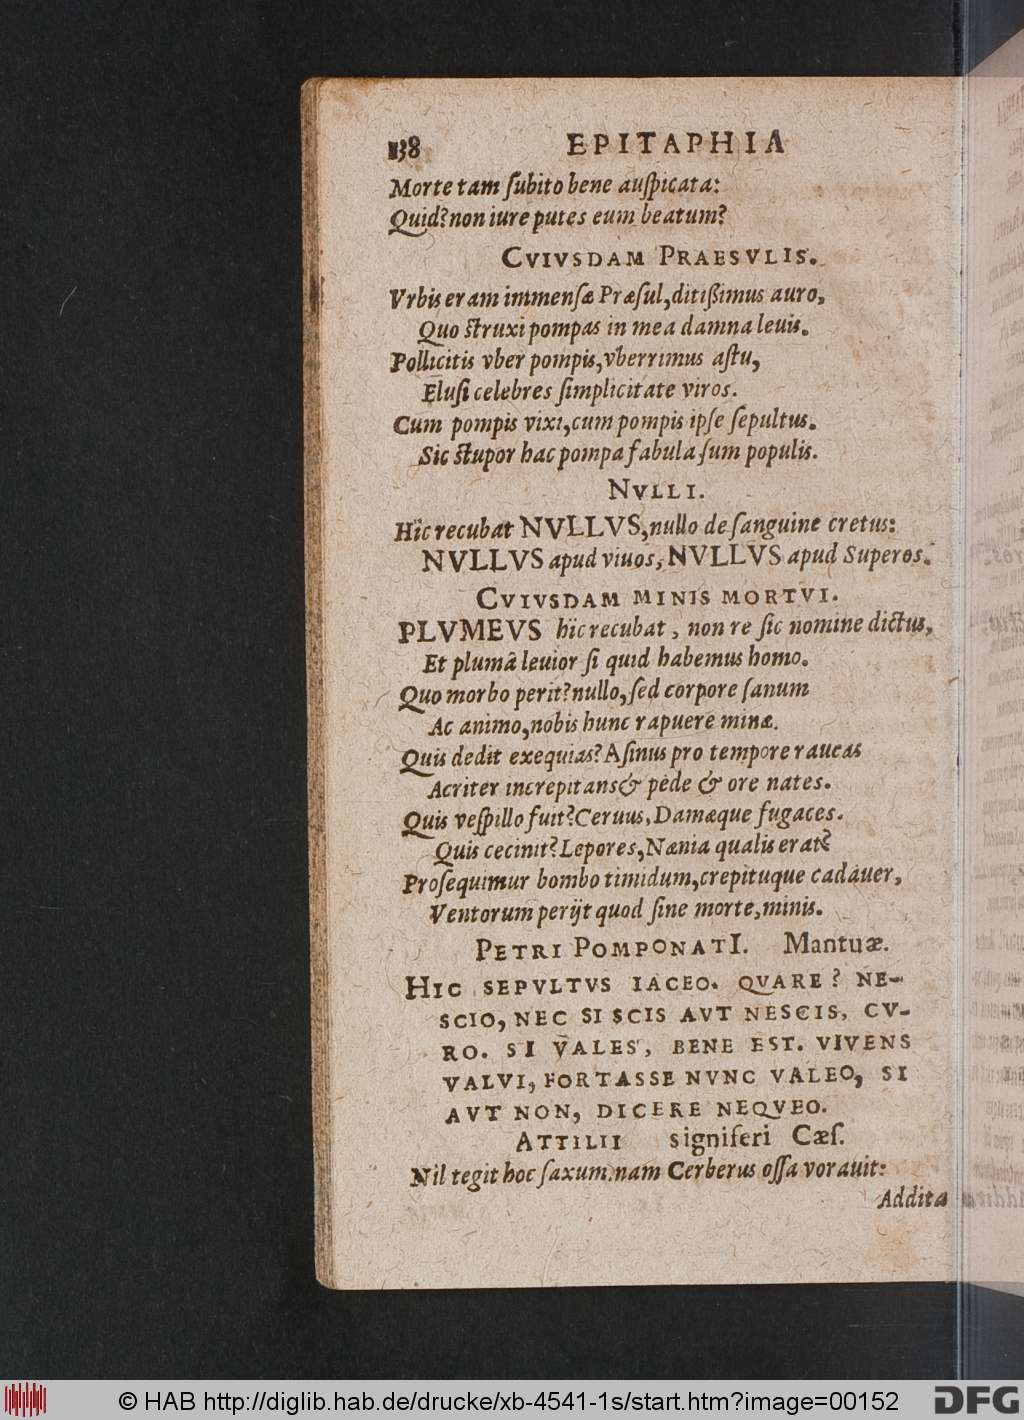 138 EPITAPHIA
Morte tam ſubito bene auſpicata:
Quid? non iure putes eum beatum?
CVIVSDAM PRAESVLIS.
Vrbis eram immenſæ Præſul, ditißimus auro,
Quo ſtruxi pompas in mea damna leuis.
Pollicitis vber pompis, vberrimus aſtu,
Eluſi celebres ſimplicitate viros.
Cum pompis vixi, cum pompis ipſe ſepultus.
Sic ſtupor hac pompa fabula ſum populis.
NVLLI.
Hîc recubat NVLLVS, nullo de ſanguine cretus:
NVLLVS apud viuos, NVLLVS apud Superos.
CVIVSDAM MINIS MORTVI.
PLVMEVS hîc recubat, non re ſic nomine dictus,
Et plumâ leuior ſi quid habemus homo.
Quo morbo perit? nullo, ſed corpore ſanum
Ac animo, nobis hunc rapuere minæ.
Quis dedit exequias? Aſinus pro tempore raucas
Acriter increpitans & pede & ore nates.
Quis veſpillo fuit? Ceruus, Damæque fugaces.
Quis cecinit? Lepores, Nænia qualis erat?
Proſequimur bombo timidum, crepituque cadauer,
Ventorum perijt quod ſine morte, minis.
PETRI POMPONATI. Mantuæ.
HIC SEPVLTVS IACEO. QVARE? NE-
SCIO, NEC SI SCIS AVT NESCIS, CV-
RO. SI VALES, BENE EST. VIVENS
VALVI, FORTASSE NVNC VALEO, SI
AVT NON, DICERE NEQVEO.
ATTILII signiferi Cæſ.
Nil tegit hoc ſaxum, nam Cerberus oſſa vorauit:
Addita
© HAB http://diglib.hab.de/drucke/xb-4541-1s/start.htm?image=00152
DFG